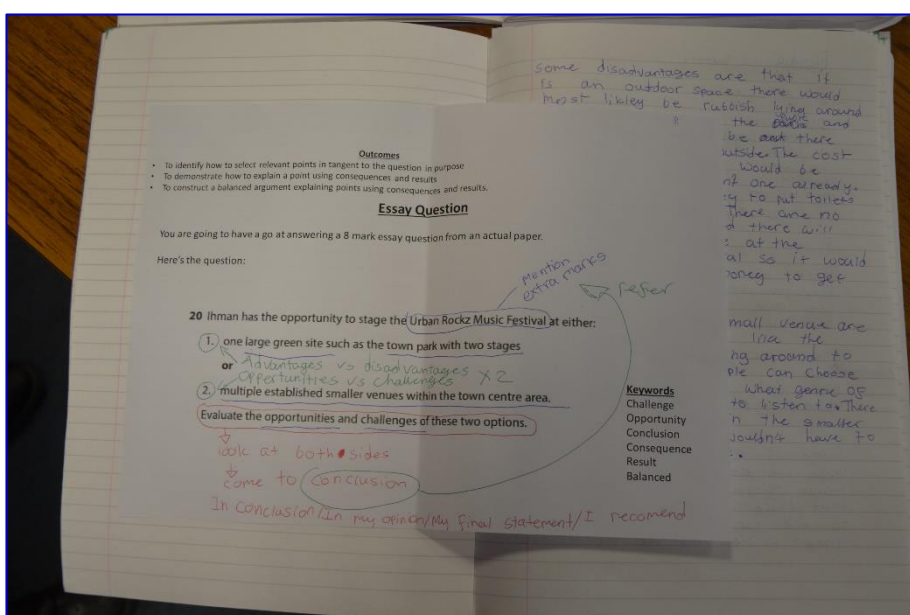 Outcomes
• To identify how to select relevant points in tangent to the question in purpose
• To demonstrate how to explain a point using consequences and results
• To construct a balanced argument explaining points using consequences and results.
Essay Question
You are going to have a go at answering a 8 mark essay question from an actual paper.
Here's the question:
Mention
extra marks
refer
20 Ihman has the opportunity to stage the Urban Rockz Music Festival at either:
1. one large green site such as the town park with two stages
or Advantages vs disadvantages
Oppertunities vs Challenges X2
2. multiple established smaller venues within the town centre area.
Evaluate the opportunities and challenges of these two options.
look at both sides
come to conclusion
In conclusion/In my opinion/My final statement/I recomend
Keywords
Challenge
Opportunity
Conclusion
Consequence
Result
Balanced
some disadvantages are that if
is an outdoor space there would
most likley be rubbish lying around
the and
be there
outside. The cost
would be
one already.
to put toilets
There are no
there will
at the
so it would
money to get
mall venue are
the
ng around to
ple can choose
what genre of
to listen to. There
n the smaller
wouldn't have to